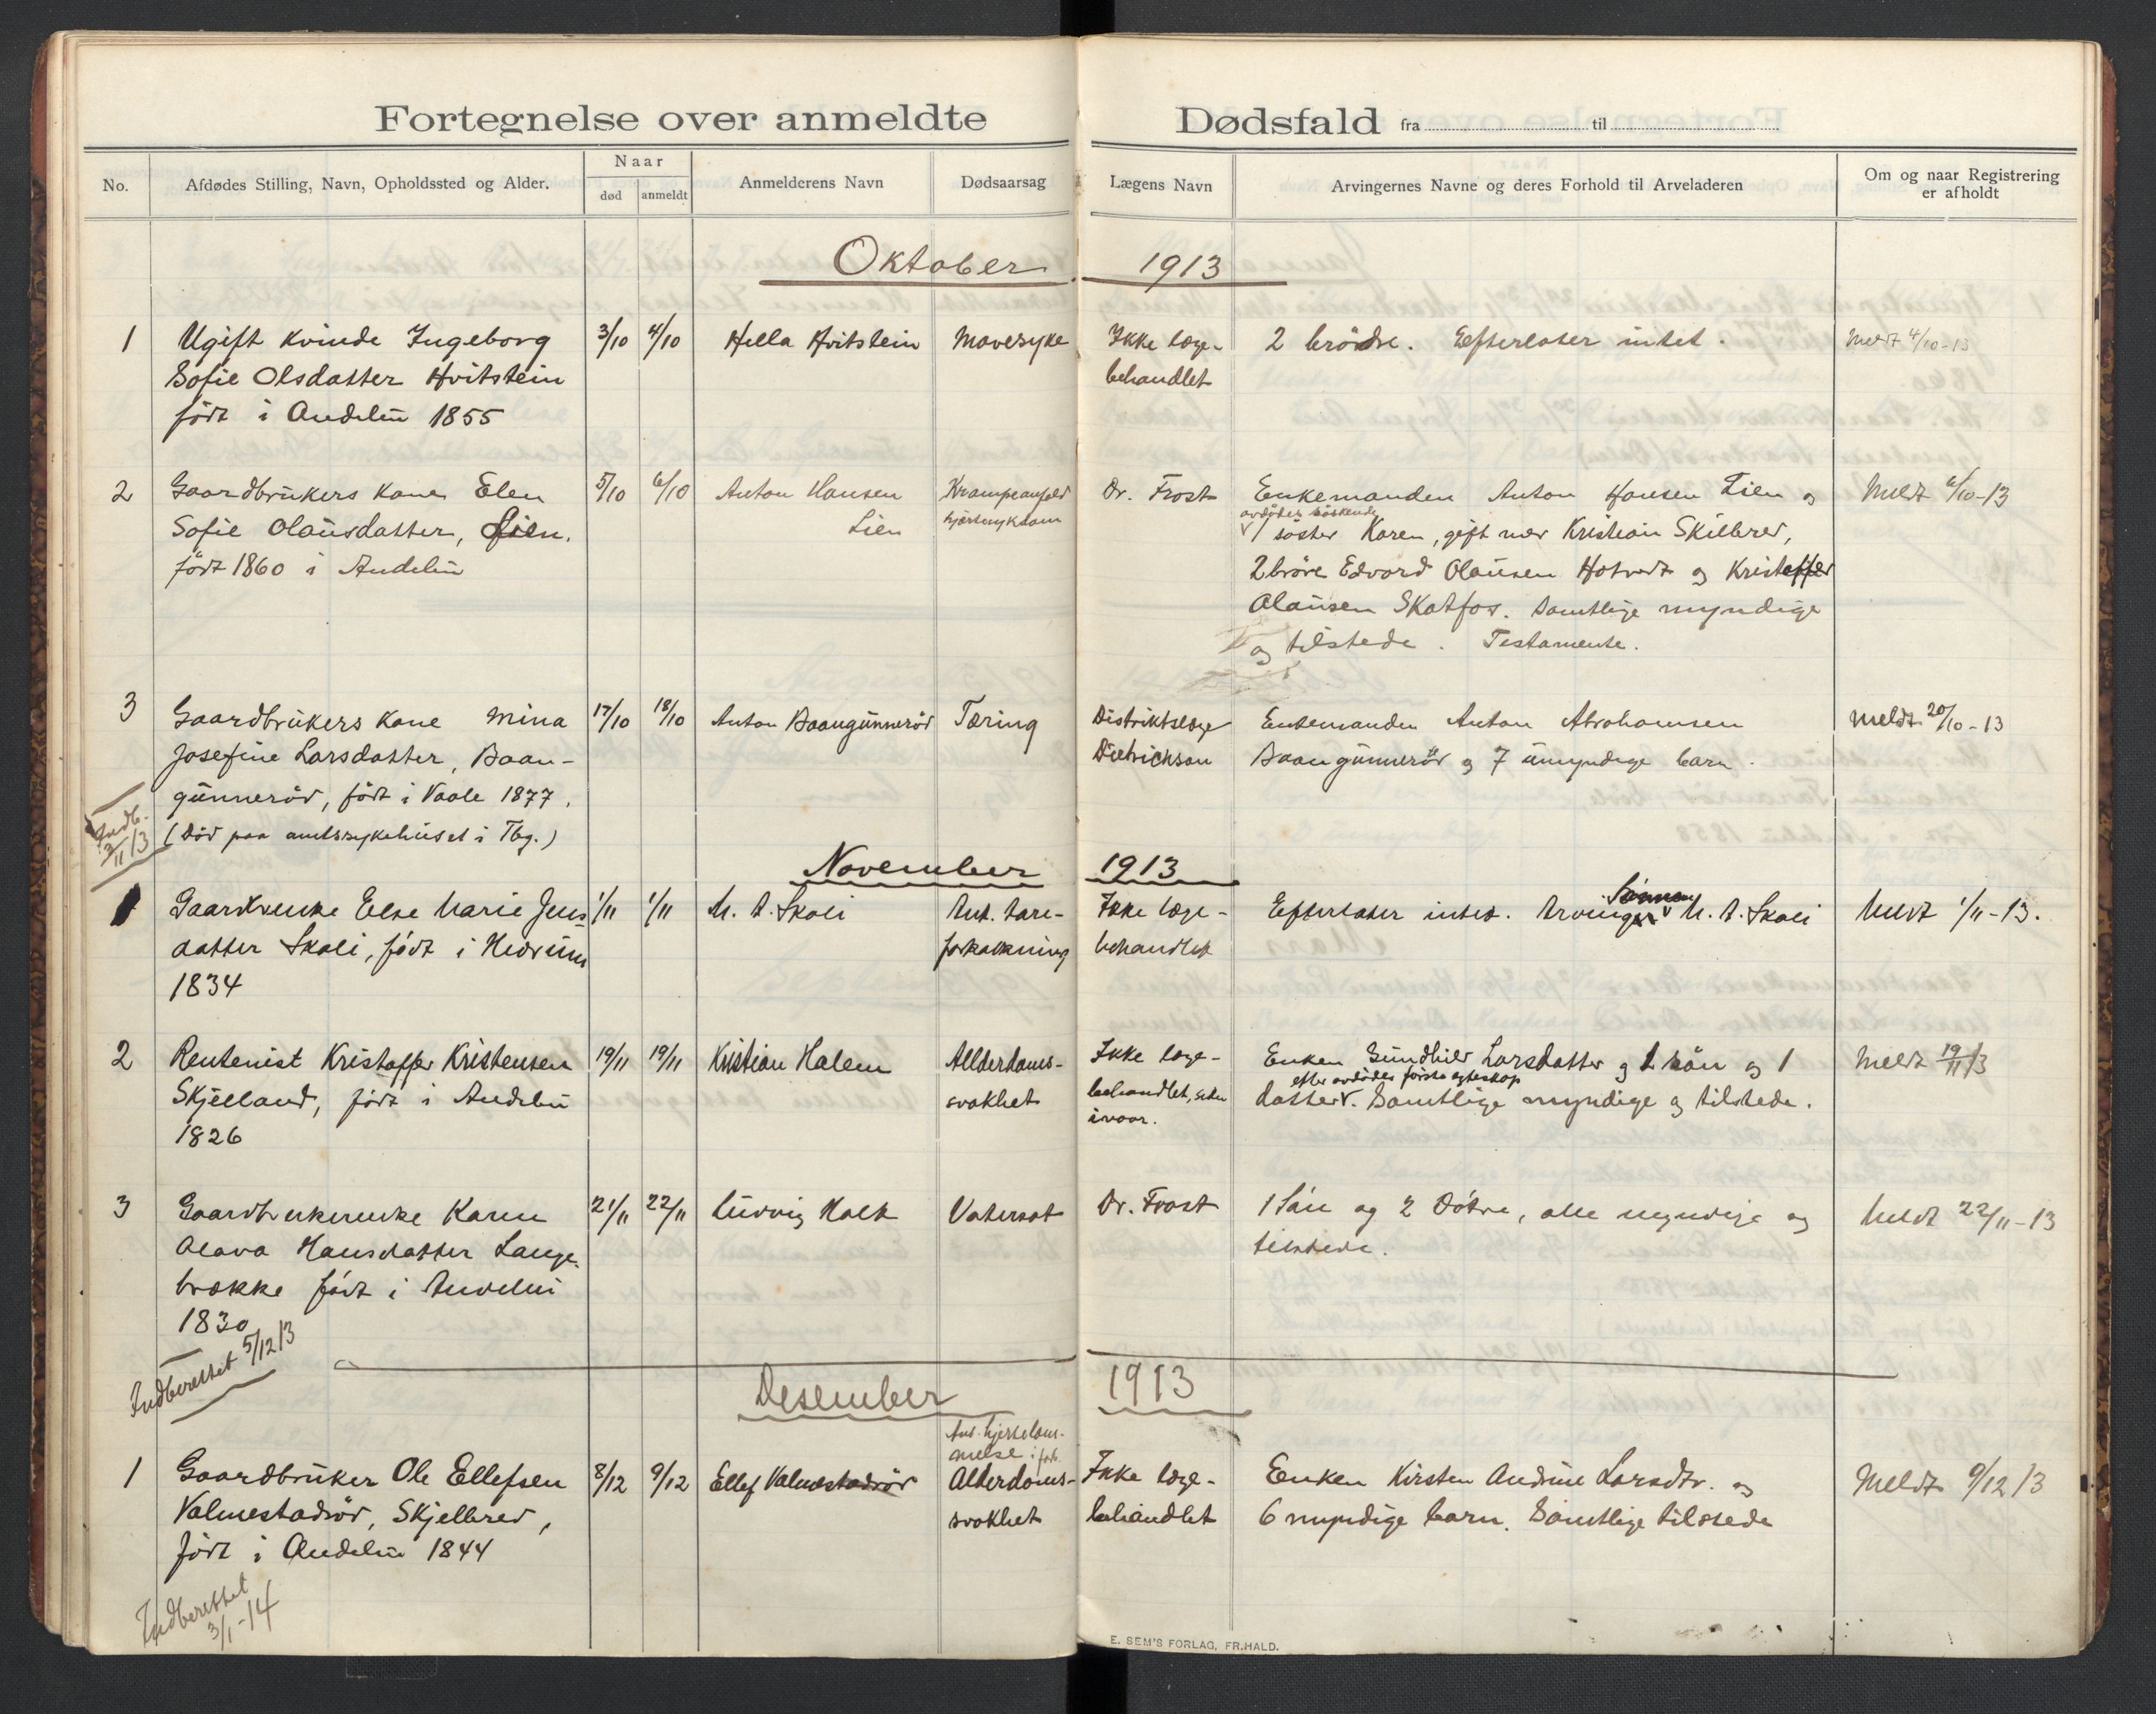 Fortegnelse over anmeldte Dødsfald fra til
No.
Afdødes Stilling, Navn, Opholdssted og Alder.
Naar
død
anmeldt
Anmelderens Navn
Dødsaarsag
Lægens Navn
Arvingernes Navne og deres Forhold til Arveladeren
Om og naar Registrering
er afholdt
Oktober 1913
1 Ugift kvinde Ingeborg 3/10 4/10 Hella Hvitstein Mavesyke Ikke læge- 2 brödre. Efterlater intet. Meldt 4/10-13
Sofie Olsdatter Hvitstein behandlet
född i Andebu 1855
2 Gaardbrukers kone Elen 5/10 6/10 Anton Hansen Krampeanfald Dr. Frost Enkemanden Anton Hansen Lien og Meldt 6/10-13
Sofie Olausdatter, Lien. Lien hjertesykdom avdødes söskende 1 söster Karen, gift med Kristian Skilbred,
födt 1860 i Andebu 2 bröre Edvard Olausen Hotvedt og Kristoffer
Olausen Skotfos. Samtlige myndige
og tilstede. Testamente.
3 Gaardbrukers kone Mina 17/10 18/10 Anton Baangunneröd Tæring Distriktslæge Enkemanden Anton Abrahamsen Meldt 20/10-13
Josefine Larsdatter, Baan- Dietrichson Baangunneröd og 7 umyndige barn.
gunneröd, födt i Vaale 1877.
(död paa amtssykehuset i Tbg.)
Indb.
3/11 13
November 1913
1 Gaardkvenke Else Marie Jens 1/11 1/11 M. A. Skoli Ant. aare- Ikke læge- Efterlater intet. Arvinger Sönnen M. A. Skoli Meldt 1/11-13.
datter Skoli, födt i Hedrum forkalkning behandlet
1834
2 Rentenist Kristoffer Kristensen 19/11 19/11 Kristian Holem Allderdoms- Ikke læge- Enken Gundhild Larsdatter og 1 sön og 1 Meldt 19/11 13
Skjelland, födt i Andebu svakhet behandlet, siden efter avdödes förste egteskap datter. Samtlige myndige og tilstede.
1826 ivaar.
3 Gaardbrukerenke Karen 21/11 22/11 Ludvig Holt Vatersot Dr. Frost 1 Sön og 2 Dötre, alle myndige og Meldt 22/11-13
Olava Hansdatter Lange- tilstede.
brække födt i Andebu
1830
Indberettet 5/12 13
Desember 1913
Ant. hjertelam-
melse i forb.
1 Gaardbruker Ole Ellefsen 8/12 9/12 Ellef Valmestadröd Alderdoms- Ikke læge- Enken Kirsten Andrine Larsdtr. og Meldt 9/12 13
Valmestadröd, Skjelbred, svakhet behandlet 6 myndige barn. Samtlige tilstede
födt i Andebu 1844
Indberettet
3/1-14
E. SEM'S FORLAG, FR.HALD.